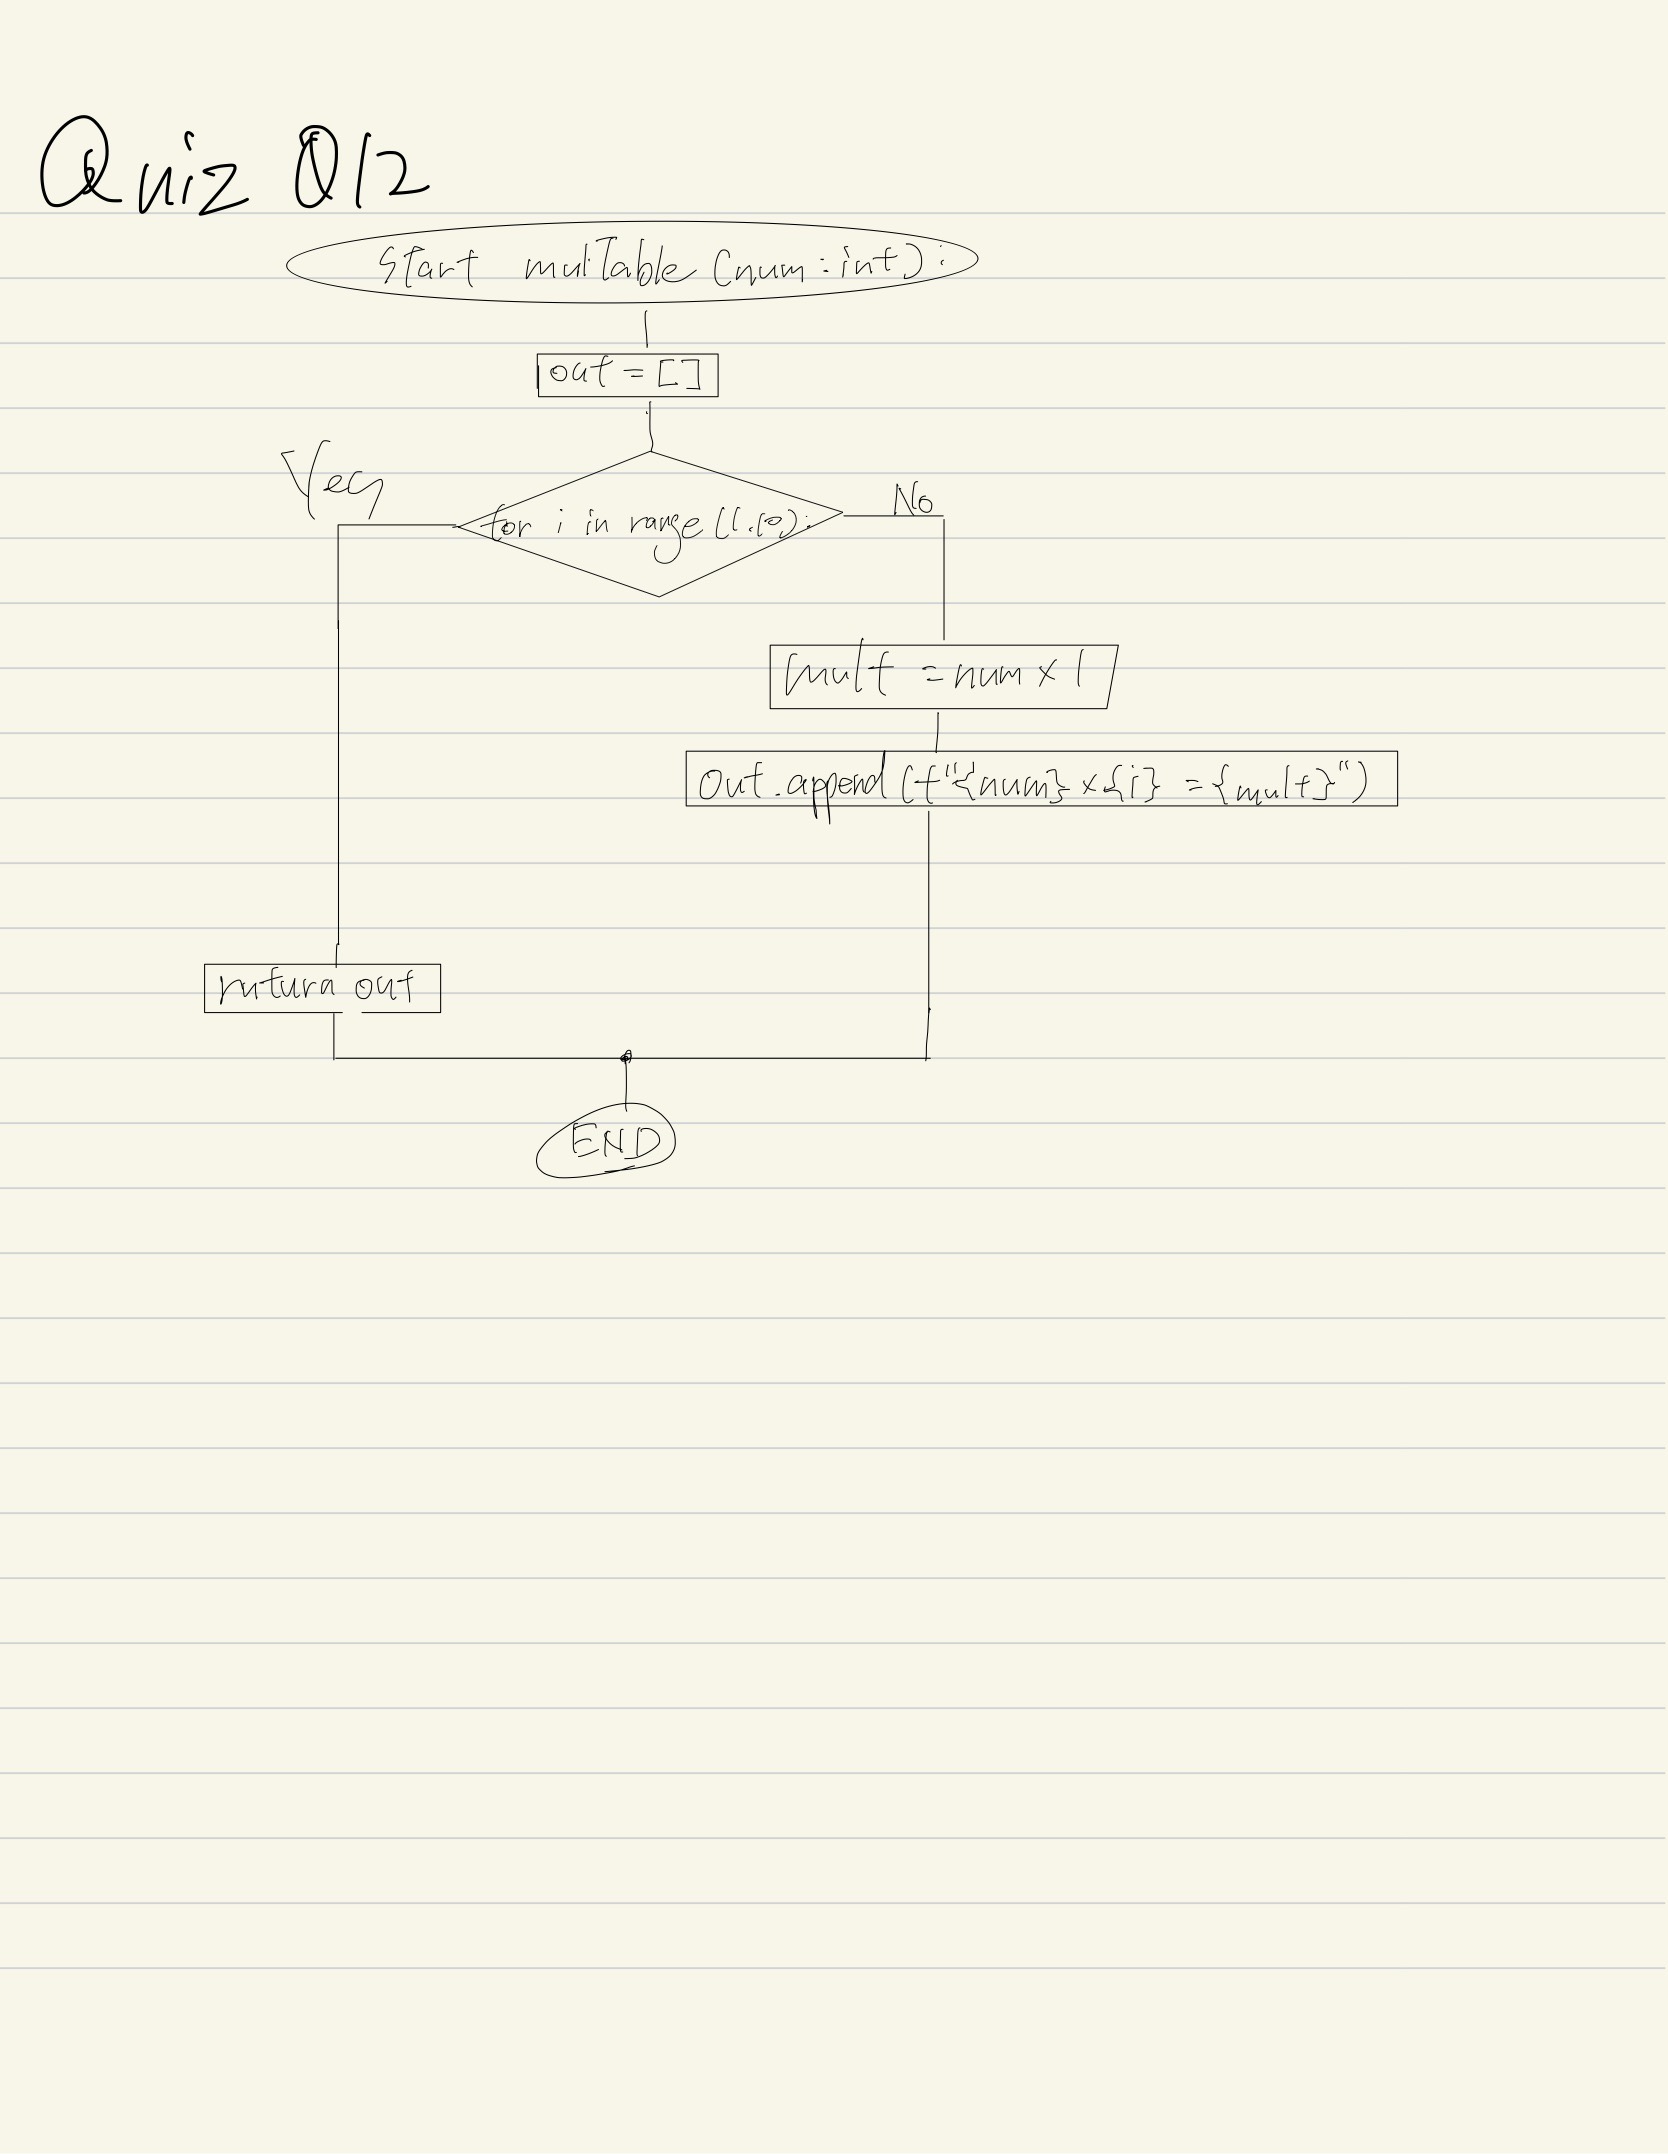 Quiz 012
Start mulTable (num:int):
out = []
Yes
No
for i in range (1.10):
mult = num x 1
Out.append (f"{num} x {i} = {mult}")
ruturn out
END